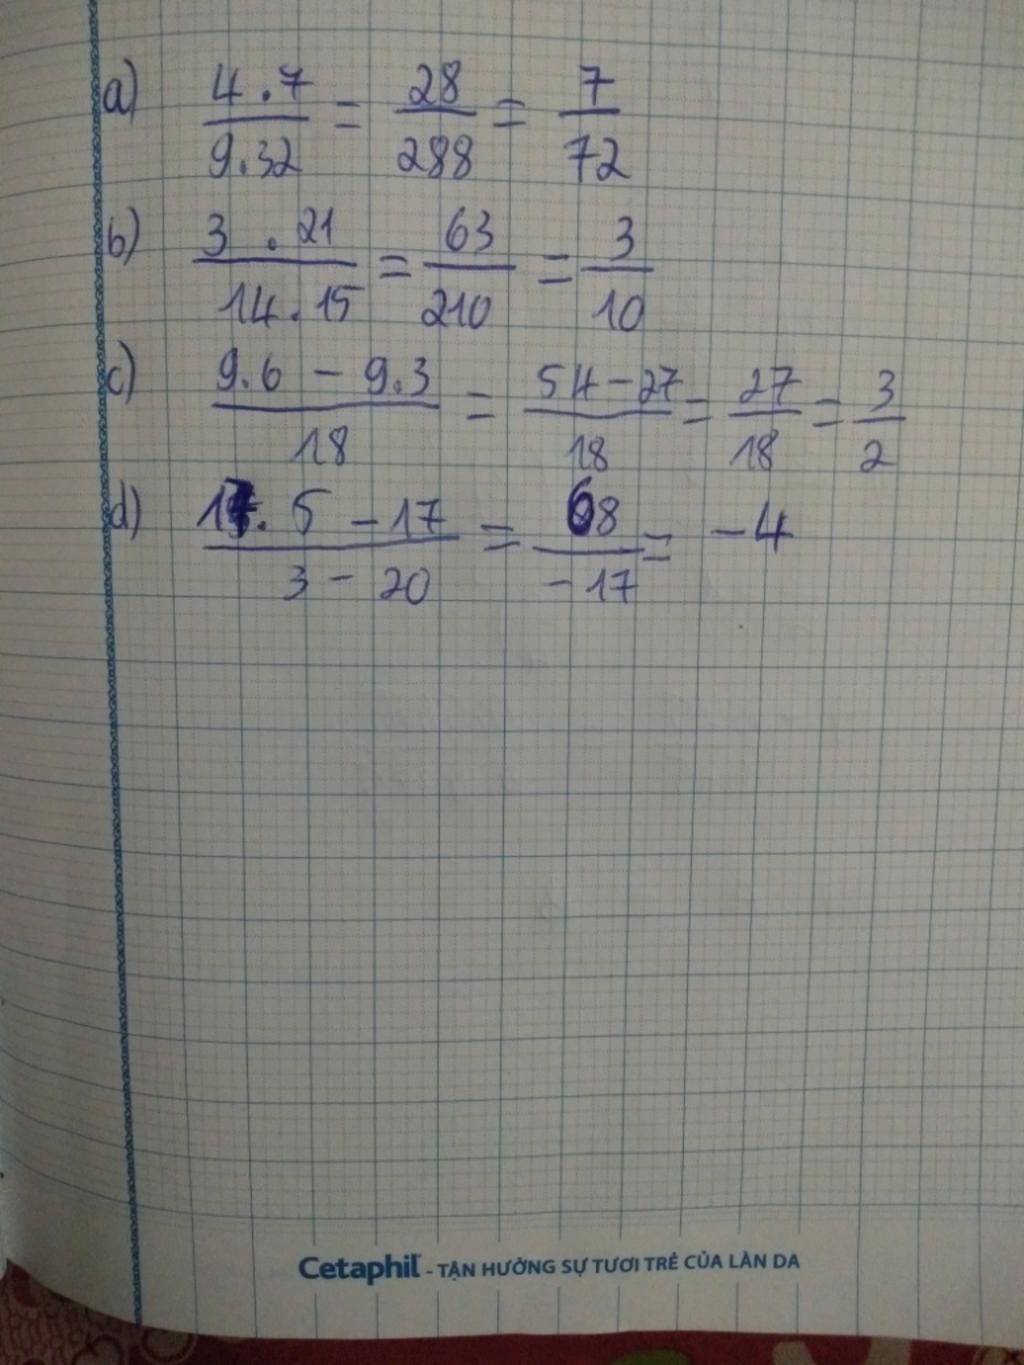 a) 4.7/9.32 = 28/288 = 7/72
b) 3.21/14.15 = 63/210 = 3/10
c) 9.6 - 9.3/18 = 54-27/18 = 27/18 = 3/2
d) 17.5 - 17/3 - 20 = 68/-17 = -4
Cetaphil - TẬN HƯỞNG SỰ TƯƠI TRẺ CỦA LÀN DA